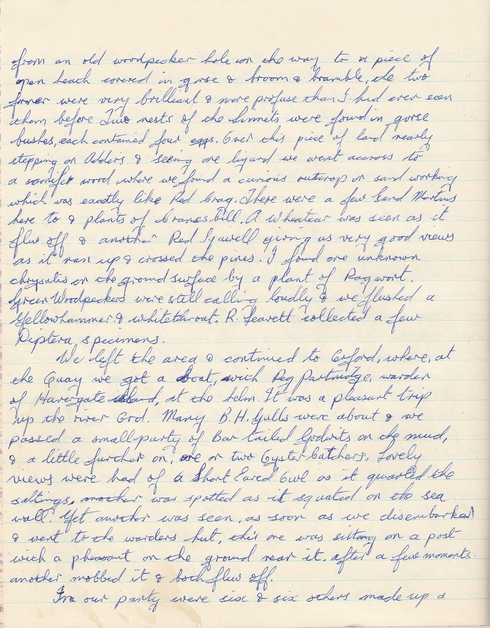 from an old woodpecker hole on the way to a piece of
open heath covered in gorse & broom & bramble, the two
former were very brilliant & more profuse than I had ever seen
them before. Two nests of the Linnets were found in gorse
bushes, each contained four eggs. Over this piece of land nearly
stepping on Adders & seeing one lizard we went accross to
a conifer wood, where we found a curious outcrop or sand working
which was exactly like Red Crag. There were a few Sand Martins
here to & plants of cranesbill. A Wheatear was seen as it
flew off & another Red Squirell giving us very good views
as it ran up & crossed the pines. I found one unknown
chrysalis on the ground surface by a plant of Ragwort.
Green Woodpeckers were still calling loudly & we flushed a
Yellowhammer & whitethroat. R. collected a few
Diptera, specimens.
We left the area & continued to Orford, where, at
the Quay we got a boat, with Reg Partridge, warder
of Havergate island, at the helm. It was a pleasant trip
up the river Ord. Many B.H. Gulls were about & we
passed a small party of Bar tailed Godwits on the mud,
& a little further on, one or two Oyster-Catchers. Lovely
views were had of a Short Eared Owl as it quarted the
saltings, another was spotted as it squated on the sea
wall. Yet another was seen, as soon as we disembarked
& went to the warders hut, this one was sitting on a post
with a pheasant on the ground near it, after a few moments
another mobbed it & both flew off.
In our party were six & six others made up a